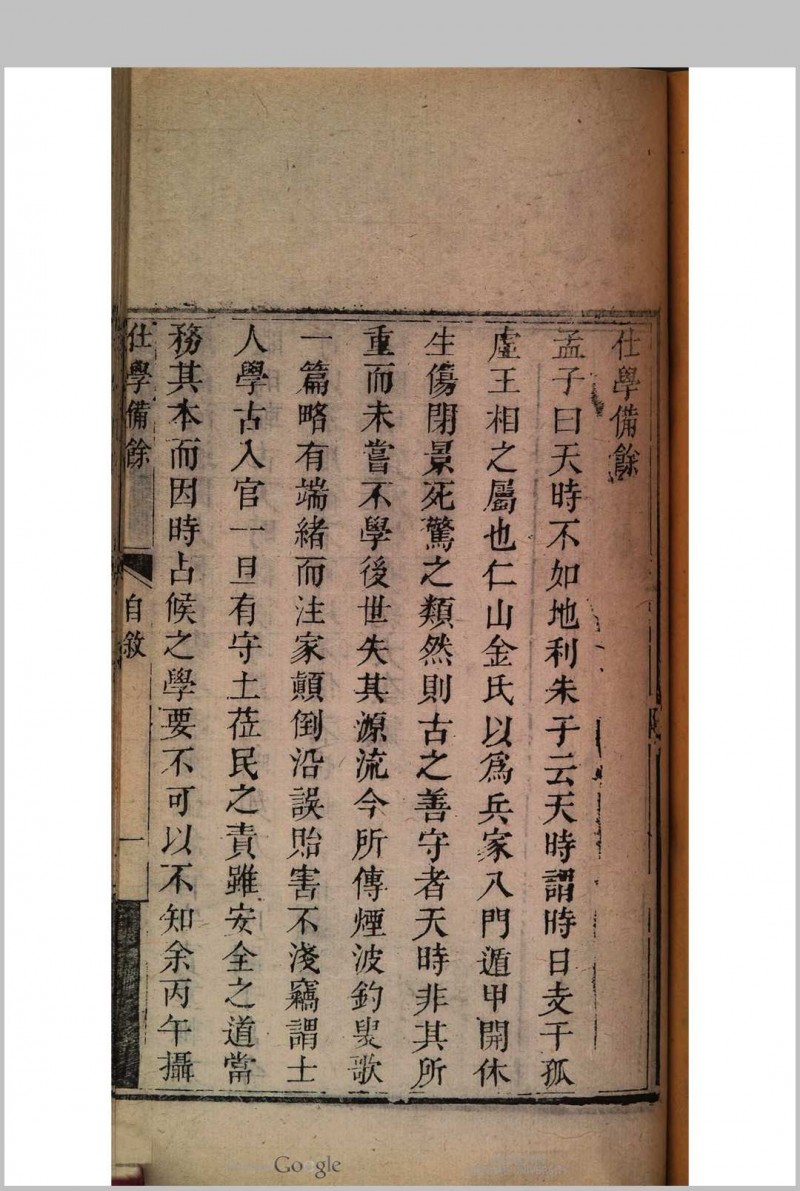 仕學備餘
孟子曰天時不如地利朱子云天時謂時日支干孤
虛王相之屬也仁山金氏以爲兵家八門遁甲開休
生傷閉景死驚之類然則古之善守者天時非其所
重而未嘗不學後世失其源流今所傳煙波釣叟歌
一篇略有端緒而注家顛倒沿誤貽害不淺竊謂士
人學古入官一旦有守土莅民之責雖安全之道當
務其本而因時占候之學要不可以不知余丙午攝
仕學備餘 自敘 一
Google